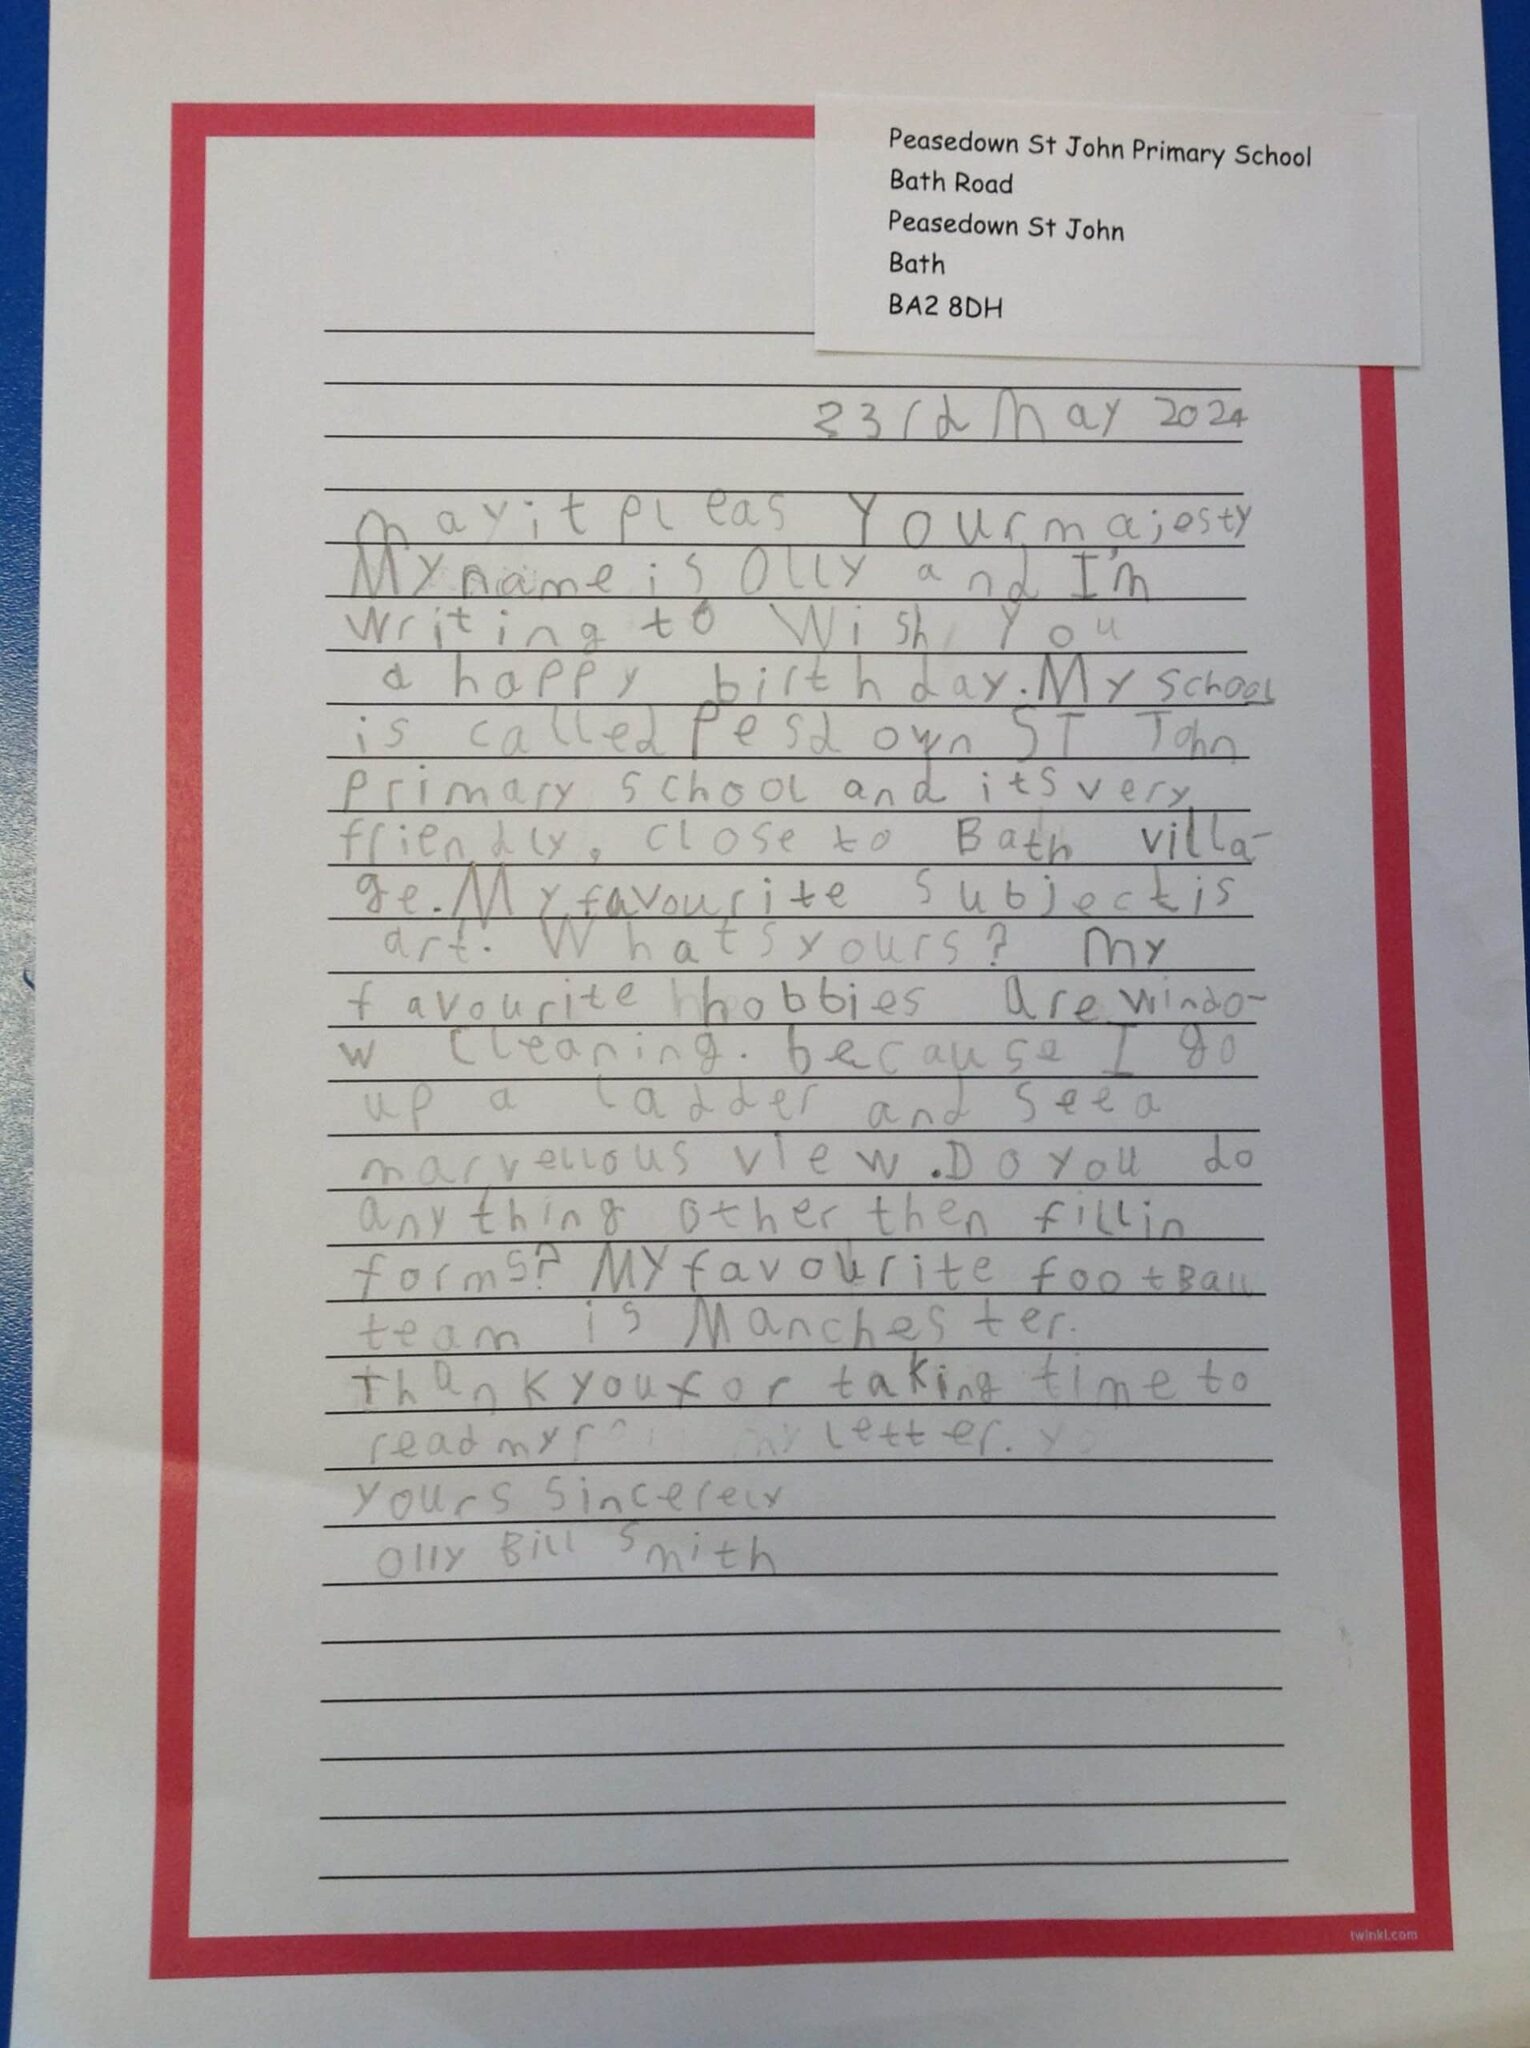 Peasedown St John Primary School
Bath Road
Peasedown St John
Bath
BA2 8DH
23rd May 2024
May it pleas Your majesty
My name is Olly and I'm
writing to Wish you
a happy birthday. My school
is called Pesdown ST John
Primary school and its very
friendly, close to Bath villa-
ge. My favourite subject is
art. Whats yours? My
favourite hobbies are windo-
w cleaning. because I go
up a ladder and see a
marvellous view. Do you do
any thing other then fillin
forms? My favourite footBall
team is Manchester.
Thank you for taking time to
read my my letter.
yours sincerely
Olly Bill Smith
twinkl.com